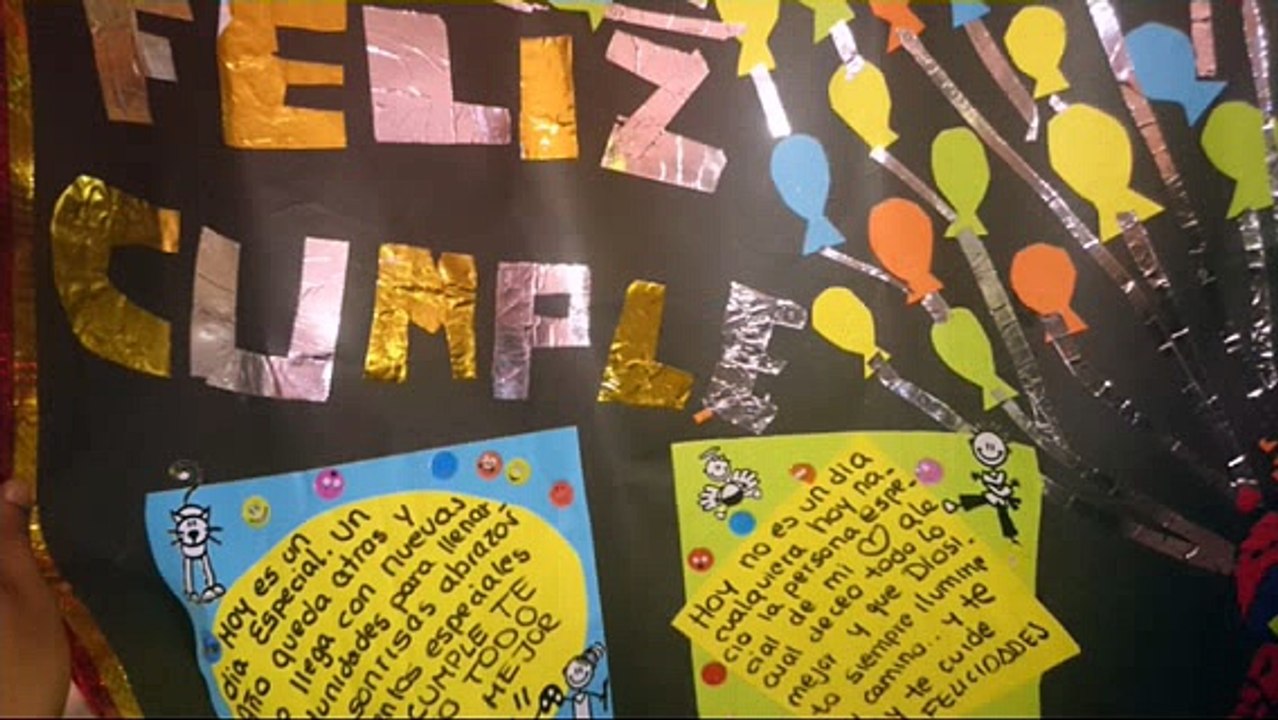 FELIZ
CUMPLE
Hoy es un
día Especial. un
Año queda atras y
llega con nuevas
unidades para llenar
sonrisas abrazos
los especiales
CUMPLE TE
TODO
MEJOR
Hoy no es un dia
cualquiera hoy na-
cio la persona Espe-
cial de mi ♡ ale
cual deceo todo lo
mejor y que Diosi.
to siempre ilumine
camino.. y te
y te cuide
FELICIDADES